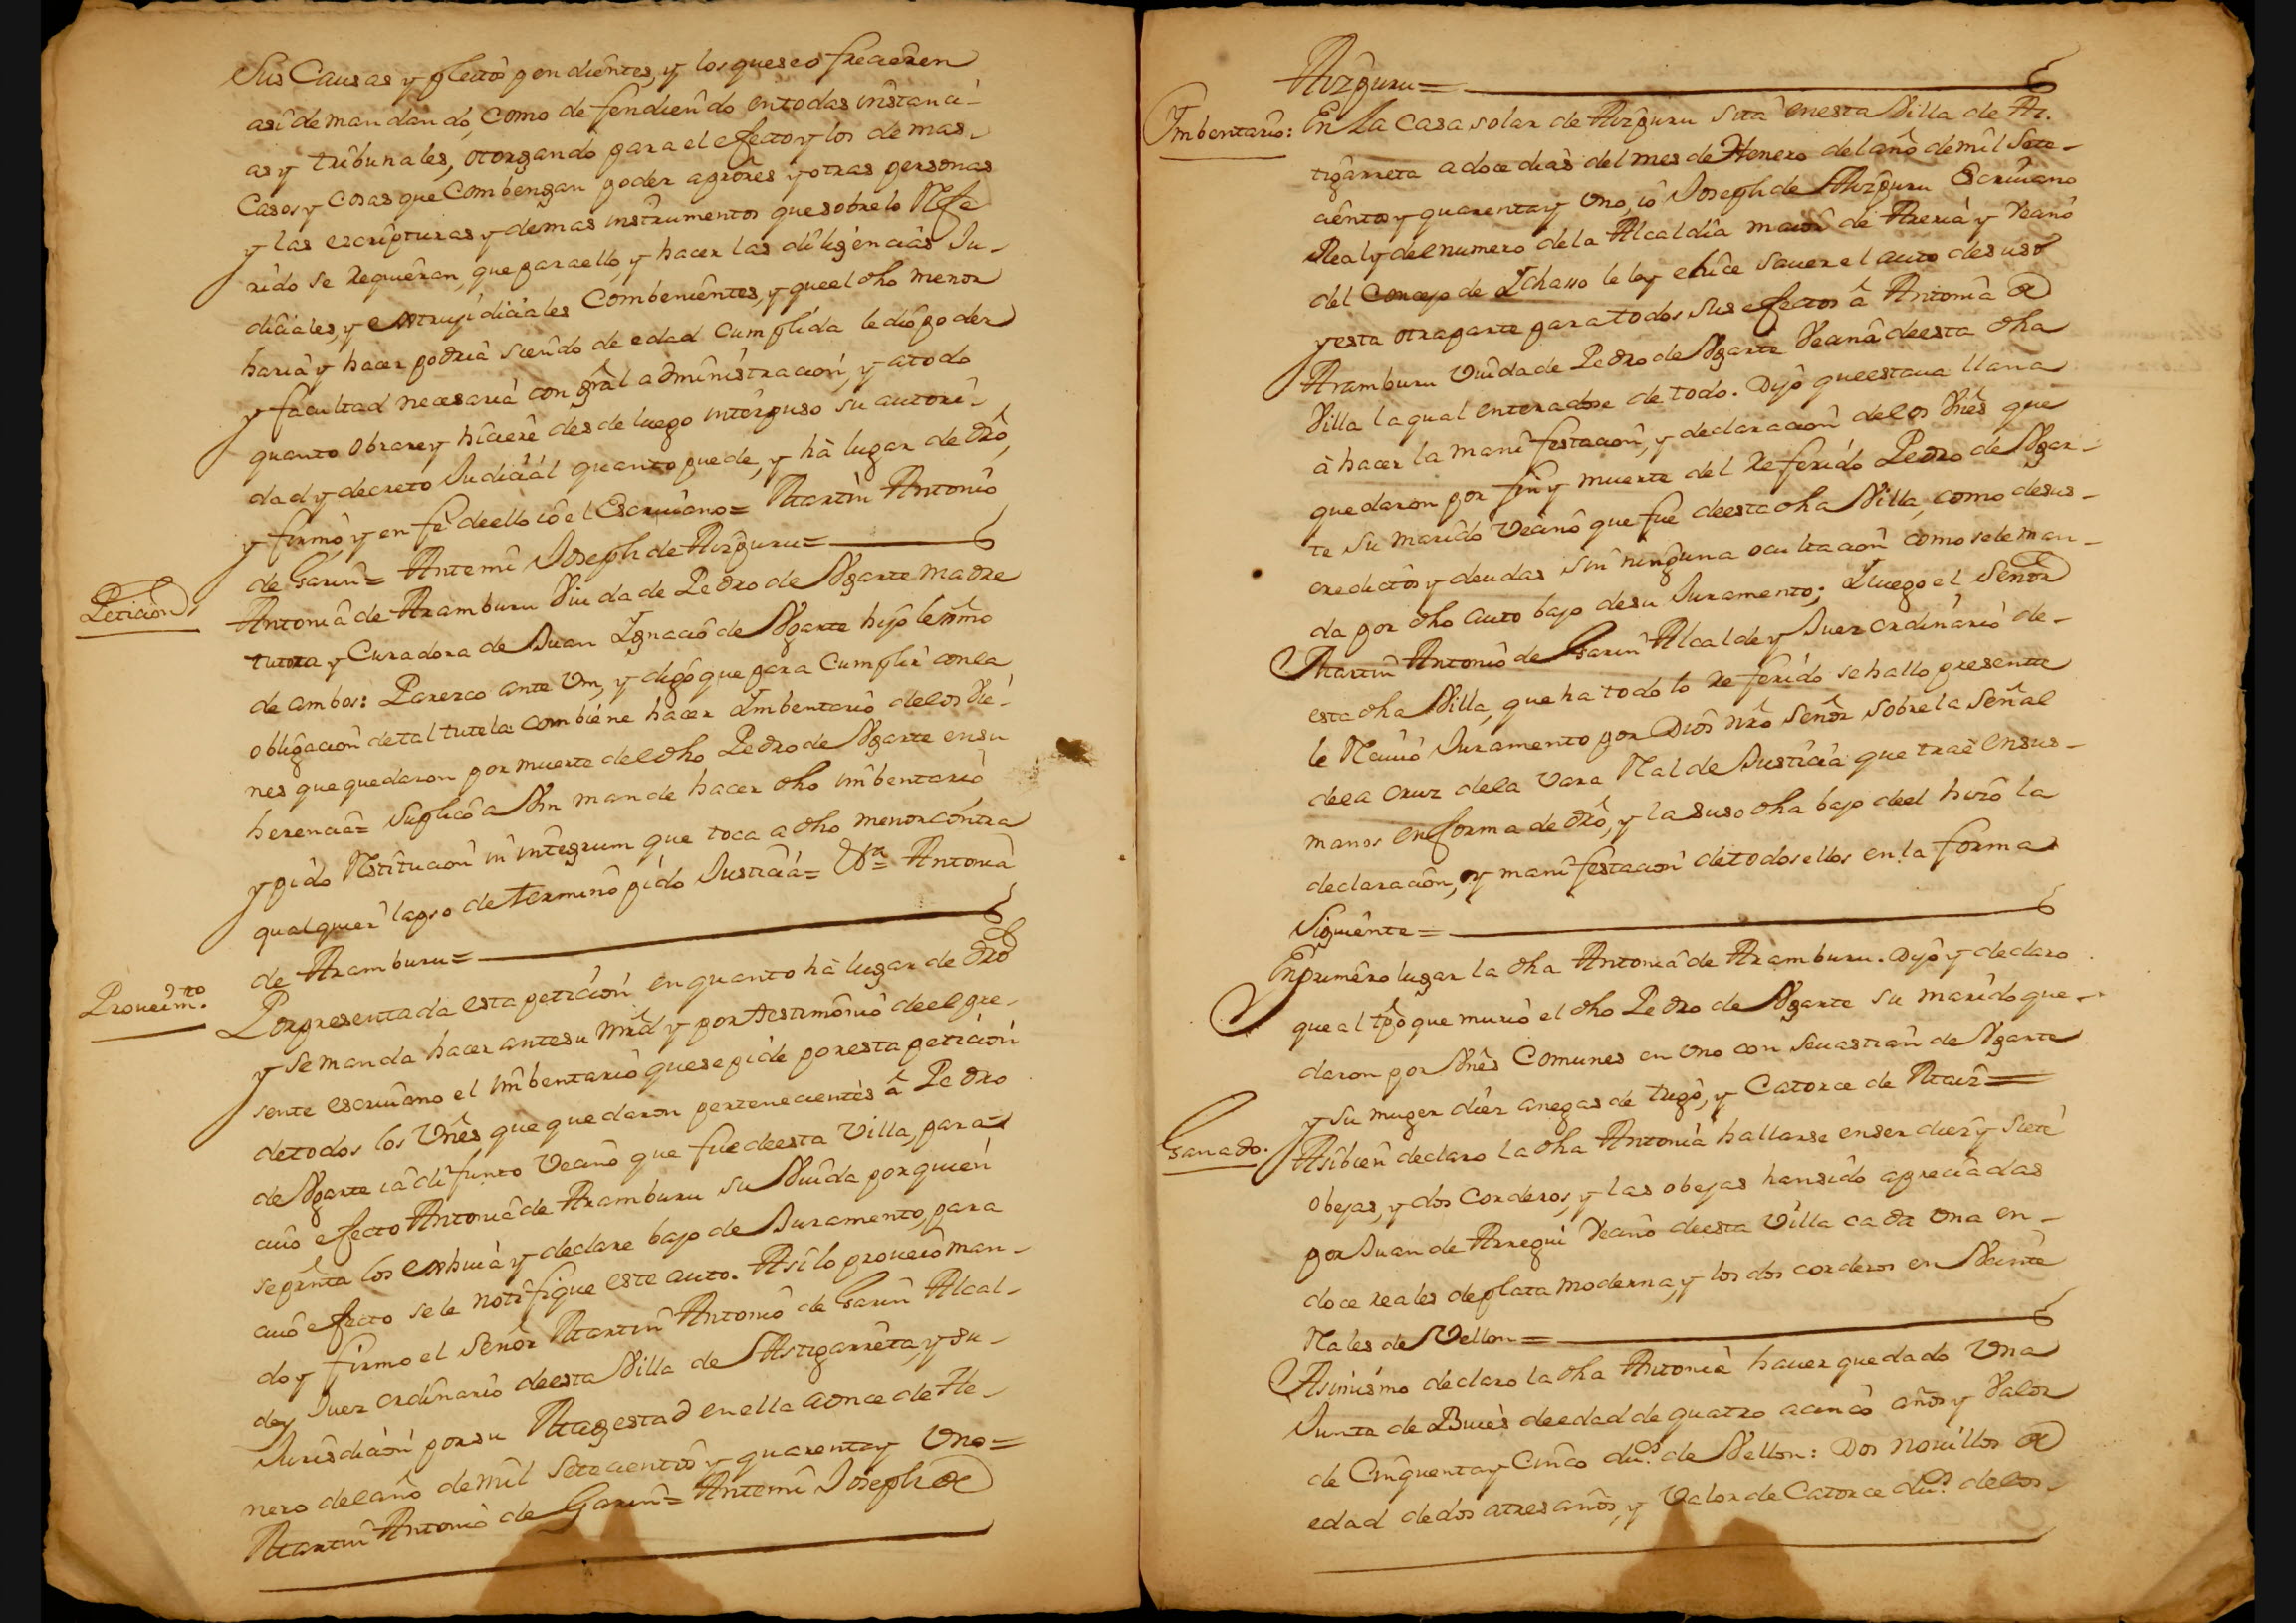 Sus Causas y pleitos pendientes, y los que se ofrecieren
asi demandando, como defendiendo en todas instanci-
as y tribunales, otorgando para el efecto y los demas
Casos y cosas que Combengan poder a pròres y otras personas
y las escripturas y demas instrumentos que sobre lo Refe
rido se requieran, que para ello, y hacer las diligencias Ju-
diciales, y extrajudiciales Combenientes, y que el dho menor
haria y hacer podria siendo de edad cumplida le dio poder
y facultad necesaria con gràl administracion, y a todo
quanto obrare y hiciere desde luego interpuso su autori-
dad y decreto Judicial quanto puede, y hà lugar de dro,
y firmò, y en fè de ello io el Escriuano= Martin Antonio
de Garin= Antemi Joseph de Aizpuru=
Peticion
Antonia de Aramburu Viuda de Pedro de Ugarte madre
tutora y Curadora de Juan Ignacio de Ugarte hijo lexmo
de ambos: Parezco ante Vm, y digo que para Cumplir con la
obligacion de tal tutela combiene hacer Imbentario de los Vie-
nes que quedaron por muerte del dho Pedro de Ugarte en su
herencia= Suplico a Vm mande hacer dho imbentario
y pido Restitucion in integrum que toca a dho menor contra
qualquier lapso de termino pido Justicia= Antonia
de Aramburu=
Proueimto.
Por presentada esta peticion en quanto hà lugar de dro
y se manda hacer ante su mrd y por testimonio de el pre-
sente escriuano el imbentario que se pide por esta peticion
de todos los Vnes que quedaron pertenecientes â Pedro
de Ugarte ia difunto Vecino que fue de esta Villa, para
cuio efecto Antonia de Aramburu su Viuda por quien
se prnta los exhiua y declare bajo de Juramento, para
cuio efecto se le notifique este auto. Asi lo proueio man-
do y firmo el Señor Martin Antonio de Garin Alcal-
de y Juez ordinario de esta Villa de Astigarreta, y su-
Jurisdicion por su Magestad en ella a once de He-
nero del año de mil setecientos y quarenta y Uno=
Martin Antonio de Garin= Antemi Joseph de
Aizpuru=
Imbentario:
En La Casa solar de Aizpuru sita en esta Villa de As-
tigarreta a doce dias del mes de Henero del año de mil sete-
cientos y quarenta y Uno, io Joseph de Aizpuru Escriuano
Real y del numero de la Alcaldia maior de Areria y Vecino
del Concejo de Ichasso le ley e hice sauer el auto de suso
y esta otra parte para todos sus efectos â Antonia de
Aramburu Viuda de Pedro de Ugarte Vecina de esta dha
Villa la qual enteradose de todo. Dijo que estaua llana
à hacer la manifestacion, y declaracion de los Vnes que
quedaron por fin y muerte del Referido Pedro de Ugar-
te su marido Vecino que fue de esta dha Villa, como de sus-
creditos y deudas sin ninguna ocultacion como se le man-
da por dho auto bajo de su Juramento; I luego el señor
Martin Antonio de Garin Alcalde y Juez ordinario de-
esta dha Villa, que ha todo lo Referido se hallo presente
le Reciuio Juramento por Dios nro señor sobre la señal
de la Cruz de la Vara Real de Justicia que trae en sus-
manos en forma de dro, y la suso dha bajo de el hizo la
declaracion, y manifestacion de todos ellos en la forma
Siguiente=
En primero lugar la dha Antonia de Aramburu. Dijo y declaro
que al tpo que murio el dho Pedro de Ugarte su marido que-
daron por Vnes Comunes en uno con Seuastian de Ugarte
y su muger diez anegas de trigo, y Catorce de Maiz=
Ganado.
Asibien declaro la dha Antonia hallarse en ser diez y siete
obejas, y dos corderos, y las obejas han sido apreciadas
por Juan de Arregui Vecino de esta Villa cada una en-
doce reales de plata moderna, y los dos corderos en Veinte
Reales de Vellon=
Asimismo declaro la dha Antonia hauer quedado Una
Junta de Bueies de edad de quatro a cinco años y Valor
de Cinquenta y Cinco dus. de Vellon: Dos nouillos de
edad de dos a tres años, y Valor de Catorce dus. de los